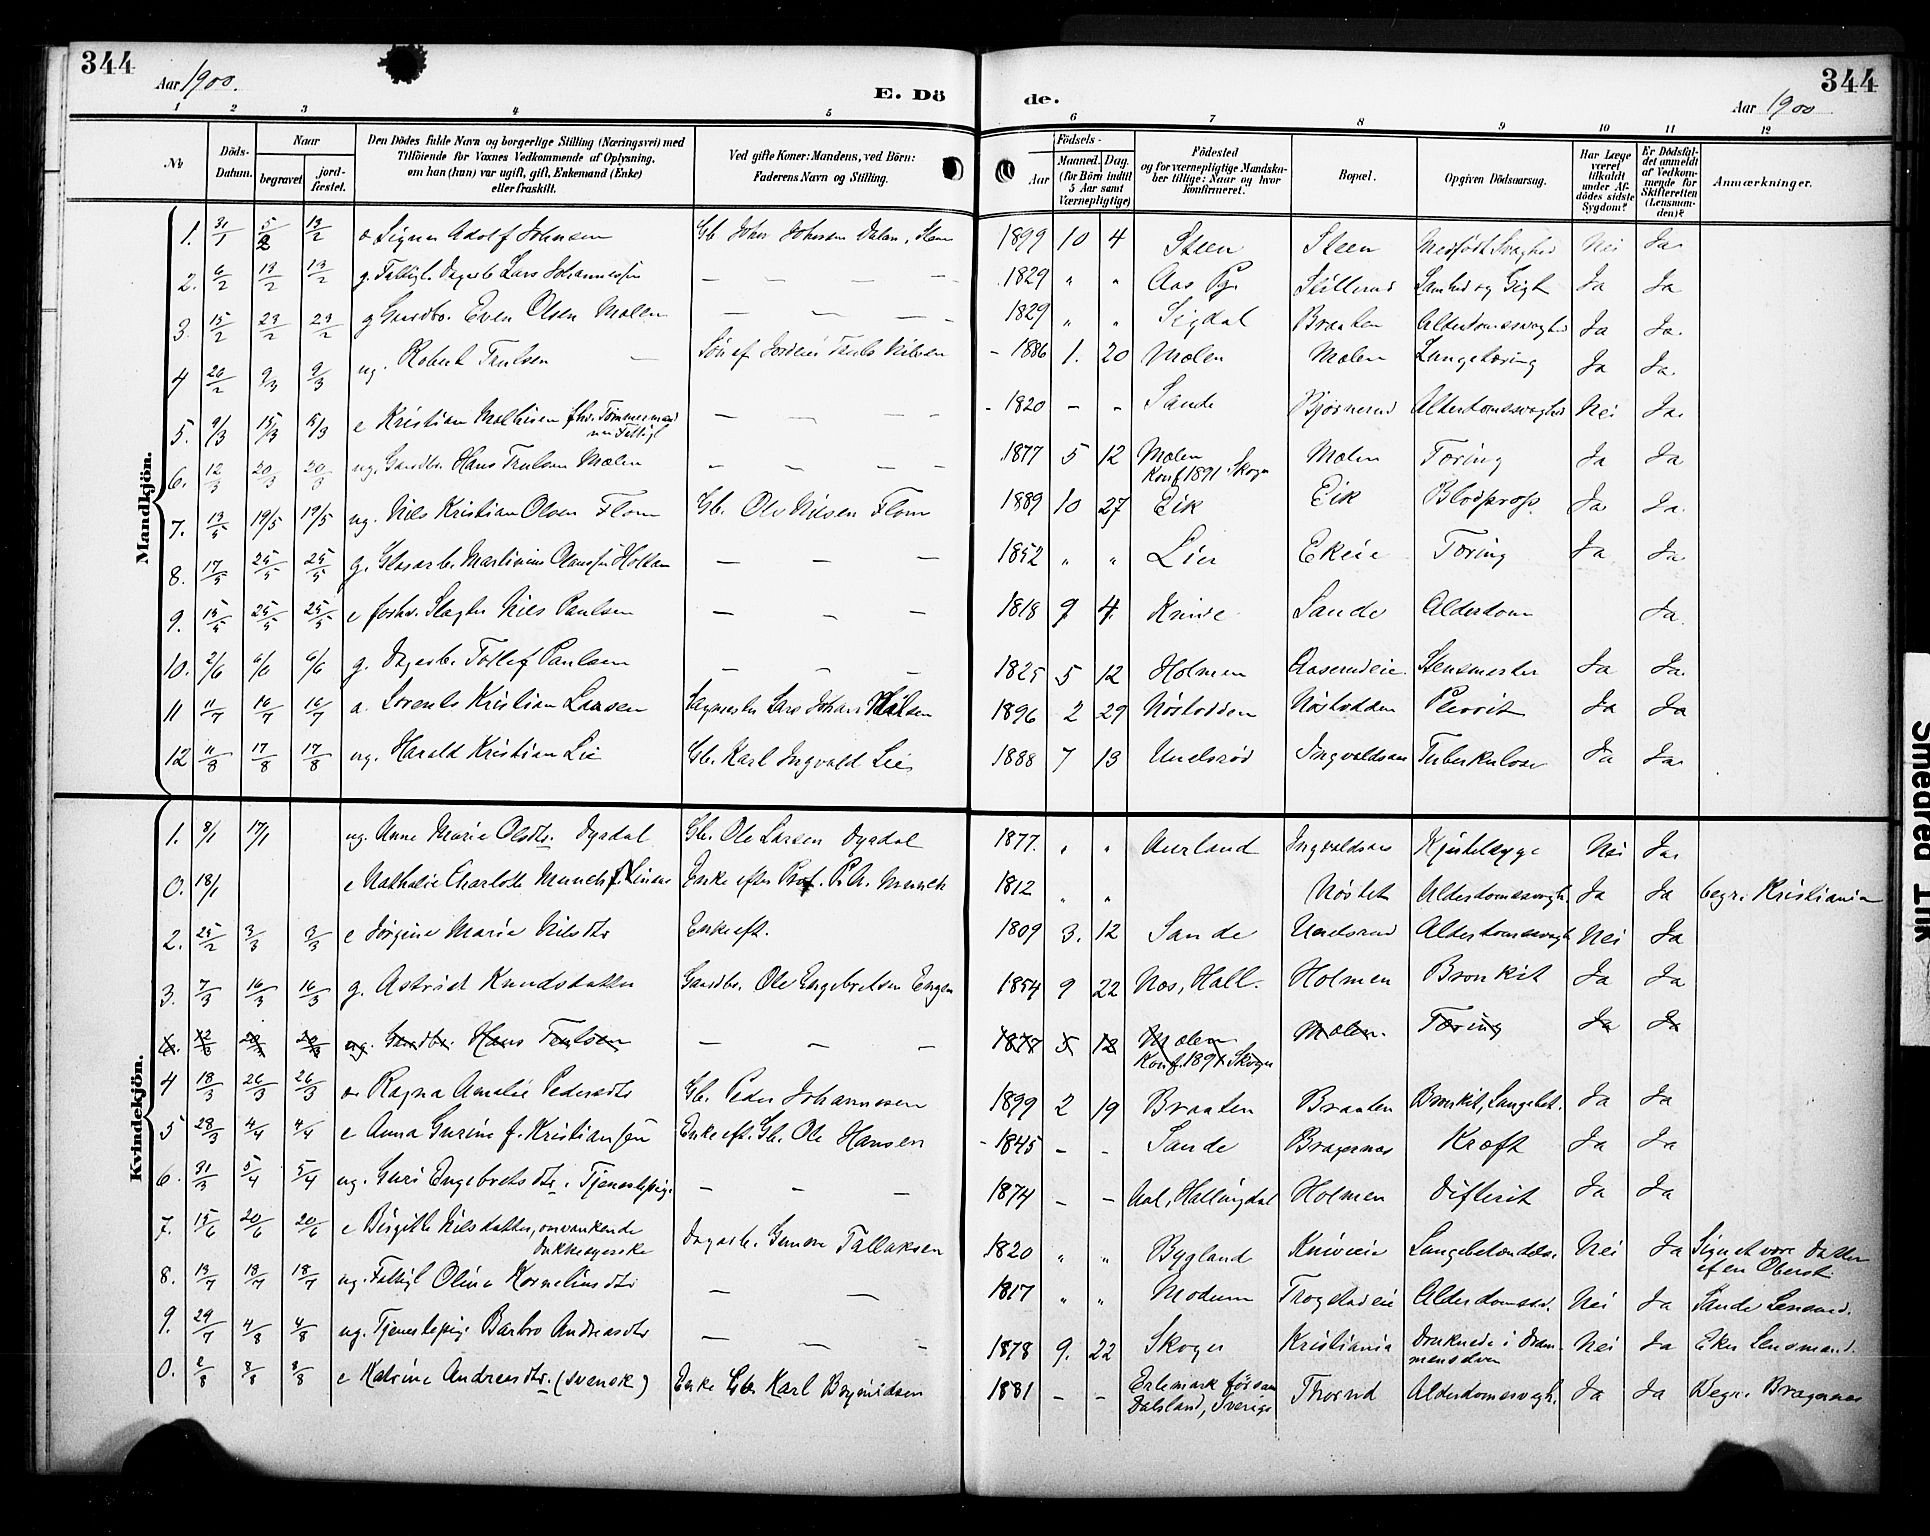 344
Aar 1900.
E. Dö
de.
Aar 1900
344
1 2 3 4 5 6 7 8 9 10 11 12
No
Döds-Datum.
Naar
begravet
jord-fæstet.
Den Dödes fulde Navn og borgerlige Stilling (Næringsvei) med
Tilföiende for Voxnes Vedkommende af Oplysning,
om han (hun) var ugift, gift, Enkemand (Enke)
eller fraskilt.
Ved gifte Koner: Mandens, ved Börn:
Faderens Navn og Stilling.
Födsels-
Aar
Maaned. Dag.
(for Börn indtil
5 Aar samt
Værnepligtige)
Födested
og for værnepligtige Mandskaber tillige: Naar og hvor
konfirmeret.
Bopæl.
Opgiven Dödsaarsag.
Har Læge
været
tilkaldt
under Afdödes sidste
Sygdom?
Er Dödsfaldet anmeldt
af Vedkommende for
Skifteretten
(Lensmanden)?
Anmærkninger.
Mandkjön.
1. 31/1 5/2 13/2 Adolf Johnsen Gb. Johan Johnsen Dalen, Steen 1899 10 4 Steen Steen Medfödt Svaghed Nei Ja.
2. 6/2 13/2 13/2 g. Fattigl. Dagarb. Lars Johannessen — — — — 1829 " " Aas Pgj. Skillerud og Gigt Ja Ja
3. 15/2 23/2 23/2 g Gaardbr. Even Olsen Molen — — — — 1829 " " Sigdal Braaten Alderdomssvaghed Ja Ja.
4 26/2 9/3 9/3 ug. Robert Trulsen — Sön af Truls Nilsen 1886 1. 20 Mælen Mælen Lungetæring Ja Ja.
5. 9/3 15/3 15/3 e Kristian Mathisen fhv. Tömmermand
nu Fattigl — — — — 1820 — " Sande Bjørnerud Alderdomssvaghed Nei Ja.
6. 12/3 20/3 20/3 ug. Gaardbr. Hans Trulsen Mælen — — — — 1877 5 12 Mælen
Konf. 1891 i Skoger Mælen Tæring Ja Ja
7. 13/5 19/5 19/5 ug. Nils Kristian Olsen Flom Gb. Ole Nilsen Flom 1889 10 27 Eik Eik Blodprop. Ja Ja.
8. 17/5 25/5 25/5 g. Glasarb. Martinius Holtan — — — 1852 " " Lier Ekeie Tæring Ja Ja
9. 15/5 25/5 25/5 e forhv. Slagter Nils Paulsen — — — 1818 9 4. Knive Sande Alderdom Ja.
10. 2/6 6/6 6/6 g. Dagarb. Tollef Paulsen — — — 1825 5 12 Holmen Aaserudeie Ja Ja.
11 11/7 16/7 16/7 a. Lorents Kristian Larsen Lars Johan Nilsen 1896 2 29 Nöstodden Nöstodden Plevrit Ja Ja
12 11/8 17/8 17/8 ug. Harald Kristian Lie Gb. Karl Ingvald Lie 1888 7 13 Undsröd Tuberkulose Ja Ja.
Kvindekjön.
1. 8/1 17/1 ug. Anne Marie Olsdtr. Dyrdal Gb. Ole Larsen Dyrdal 1877. " " Aurland Nei Ja.
0. 18/1 e Nathalie Charlotte Munch f. Linaae Enke efter Prof. P. A. Munch 1812 " " Nöstet Alderdomssvagh. Ja Ja begr. i Kristiania
2. 25/2 3/3 3/3 e Jörgine Marie Nilsdtr Enke eft. 1809 3. 12 Sande Undsrud Alderdomssvagh Nei Ja
3. 7/3 16/3 16/3 g. Astrid Knudsdatter Gaardbr. Ole Engebretsen Engen 1854 9 22 Nes, Hall. Holmen Bronkit Ja Ja
12/3 20/3 20/3 ug. Gaardbr. Hans Trulsen — — — 1877 5 12 Mælen
Konf. 1891 i Skoger Mælen. Tæring Ja Ja
4 18/3 26/3 26/3 Ragna Amalie Pedersdtr Gb. Peder Johannesen 1899 2 19 Braaten Braaten Bronkit, Lungebet. Ja Ja
5 28/3 4/4 4/4 e Anna Gurine f. Kristiansen Enke eft. Gb. Ole Hansen 1845 — — Sande Bragernes Kræft Ja Ja
6. 31/3 5/4 5/4 ug. Guri Engebretsdtr. Tjenestepige — — — 1874 — — Aal, Hallingdal Holmen Difterit Ja Ja
7. 15/6 20/6 20/6 e Birgitte Nilsdatter, omvankende
Dagarb. Gunder Tallaksen 1820 " " Bygland Kniveie Lungebetændelse Nei Ja Siges at være Datter
af en Oberst.
8. 13/7 18/7 18/7 ug. Fattigl Oline Korneliusdtr — — 1817 " " Modum Alderdomssv. Nei Ja Sande Lensmd.
9. 29/7 4/8 4/8 ug. Tjenestepige Barbro Andreasdtr — — — 1878 9. 22 Skoger Kristiania Druknede i Drammenselven Nei Ja Eker Lensmand.
0. 2/8 8/8 8/8 e Katrine Andreasdtr. (svensk) Enke Gb. Karl 1831 — —
Dalsland, Sverige Alderdomssvagh. Ja Ja Begr. Bragernes
Smeared Ink